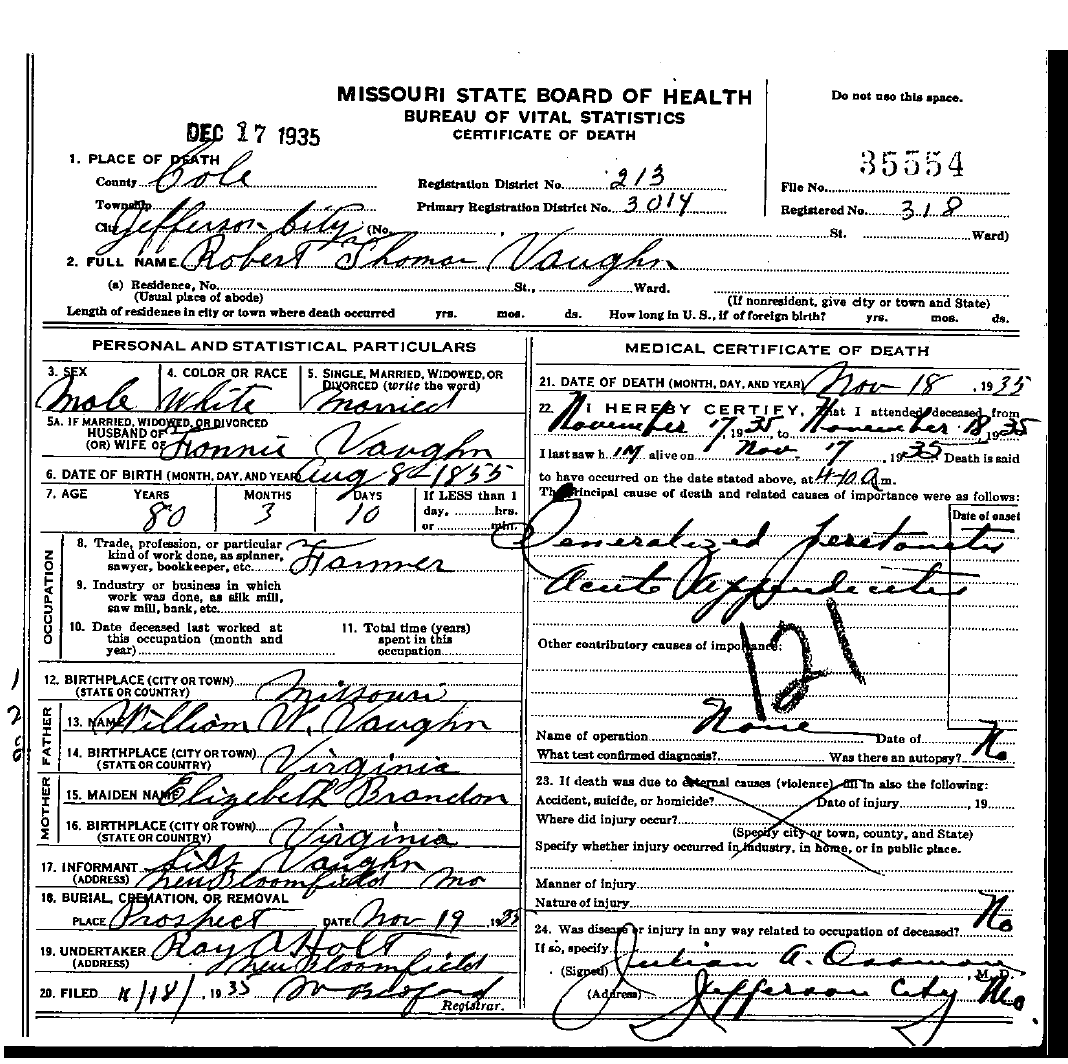 MISSOURI STATE BOARD OF HEALTH
BUREAU OF VITAL STATISTICS
CERTIFICATE OF DEATH
Do not use this space.
DEC 17 1935
35554
1. PLACE OF DEATH
County Cole
Registration District No. 213
File No.
Township
Primary Registration District No. 3014
Registered No. 318
City Jefferson City (No. St. Ward)
2. FULL NAME Robert Thomas Vaughn
(a) Residence, No. St., Ward.
(Usual place of abode)
(If nonresident, give city or town and State)
Length of residence in city or town where death occurred yrs. mos. ds. How long in U. S., if of foreign birth? yrs. mos. ds.
PERSONAL AND STATISTICAL PARTICULARS
3. SEX
Male
4. COLOR OR RACE
White
5. SINGLE, MARRIED, WIDOWED, OR
DIVORCED (write the word)
Married
5A. IF MARRIED, WIDOWED, OR DIVORCED
HUSBAND OF
(OR) WIFE OF Vaughn
6. DATE OF BIRTH (MONTH, DAY, AND YEAR) Aug 8 - 1855
7. AGE YEARS MONTHS DAYS If LESS than 1
80 3 10 day, hrs.
or min.
OCCUPATION
8. Trade, profession, or particular
kind of work done, as spinner,
sawyer, bookkeeper, etc. Farmer
9. Industry or business in which
work was done, as silk mill,
saw mill, bank, etc.
10. Date deceased last worked at
this occupation (month and
year)
11. Total time (years)
spent in this
occupation
12. BIRTHPLACE (CITY OR TOWN)
(STATE OR COUNTRY) Missouri
FATHER
13. NAME William W. Vaughn
14. BIRTHPLACE (CITY OR TOWN)
(STATE OR COUNTRY) Virginia
MOTHER
15. MAIDEN NAME Elizabeth Brandon
16. BIRTHPLACE (CITY OR TOWN)
(STATE OR COUNTRY) Virginia
17. INFORMANT Vaughn
(ADDRESS) New Bloomfield Mo
18. BURIAL, CREMATION, OR REMOVAL
PLACE Prospect DATE Nov 19 1935
19. UNDERTAKER Roy A Holt
(ADDRESS) New Bloomfield
20. FILED 11/18/, 1935
Registrar.
1
2
MEDICAL CERTIFICATE OF DEATH
21. DATE OF DEATH (MONTH, DAY, AND YEAR) Nov 18, 1935
22. I HEREBY CERTIFY, That I attended deceased from
November 17, 1935, to November 18, 1935
I last saw h im alive on Nov. 17, 1935 Death is said
to have occurred on the date stated above, at 4:10 a m.
The principal cause of death and related causes of importance were as follows:
Date of onset
Generalized peritonitis
Acute Appendicitis
121
Other contributory causes of importance:
Name of operation None Date of
What test confirmed diagnosis? Was there an autopsy? No
23. If death was due to external causes (violence) fill in also the following:
Accident, suicide, or homicide? Date of injury, 19
Where did injury occur?
(Specify city or town, county, and State)
Specify whether injury occurred in industry, in home, or in public place.
Manner of injury
Nature of injury
24. Was disease or injury in any way related to occupation of deceased? No
If so, specify
(Signed) Julian A. Ossman, M. D.
(Address) Jefferson City Mo.